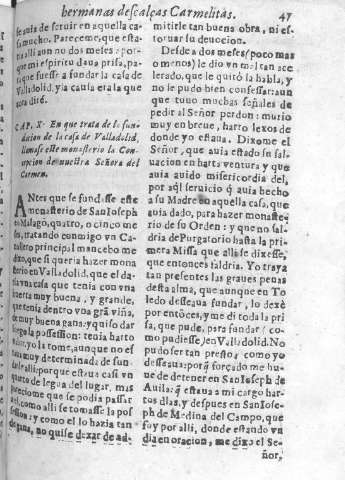 hermanas descalças Carmelitas. 47
se auia de seruir en aquella ca-
sa mucho. Pareceme, que esta-
ria alli aun no dos meses: por-
que mi espiritu daua prisa, pa-
ra que fuesse a fundar la casa de
Valladolid, y la causa era la que
aora diré.
CAP. X. En que trata de la fun-
dacion de la casa de Valladolid,
llamase este monasterio la Con-
cepcion de nuestra Señora del
Carmen.
ANtes que se fundasse este
monasterio de San Ioseph
en Malagō, quatro, o cinco me
ses, tratando conmigo vn Ca-
uallero principal mancebo me
dixo, que si queria hazer mona
sterio en Valladolid, que el da-
ria vna casa que tenia con vna
huerta muy buena, y grande,
que tenia dentro vna grā viña,
de muy buena gana, y quiso dar
luego la possession: tenia harto
valor, yo la tome, aunque no es
taua muy determinada de fun-
darle alli: porque estaua casi vn
quarto de legua del lugar, mas
pareciome que se podia passar
a el, como alli se tomasse la pos
session: y como el lo hazia tan
de gana, no quise dexar de ad-
mitirle tan buena obra, ni es-
toruar su deuocion.
Desde a dos meses (poco mas
o menos) le dio vn mal tan ace
lerado, que le quitò la habla, y
no se pudo bien confessar: aun
que tuuo muchas señales de
pedir al Señor perdon: murio
muy en breue, harto lexos de
donde yo estaua. Dixome el
Señor, que auia estado su sal-
uacion en harta ventura y que
auia auido misericordia del,
por aq̃l seruicio q̃ auia hecho
a su Madre en aquella casa, que
auia dado, para hazer monaste-
rio de su Orden: y que no sal-
dria de Purgatorio hasta la pri-
mera Missa que alli se dixesse,
que entonces saldria. Yo traya
tan presentes las graues penas
desta alma, que aunque en To
ledo desseaua fundar, lo dexè
por entōces, y me di toda la pri
sa, que pude, para fundar (co-
mo pudiesse) en Valladolid. No
pudo ser tan presto como yo
desseaua: porq̃ forçado me hu-
ue de detener en San Ioseph de
Auila: q̃ estaua a mi cargo har-
tos dias, y despues en San Iose-
ph de Medina del Campo, que
fuy por alli, donde estando vn
dia en oracion, me dixo el Se-
ñor,